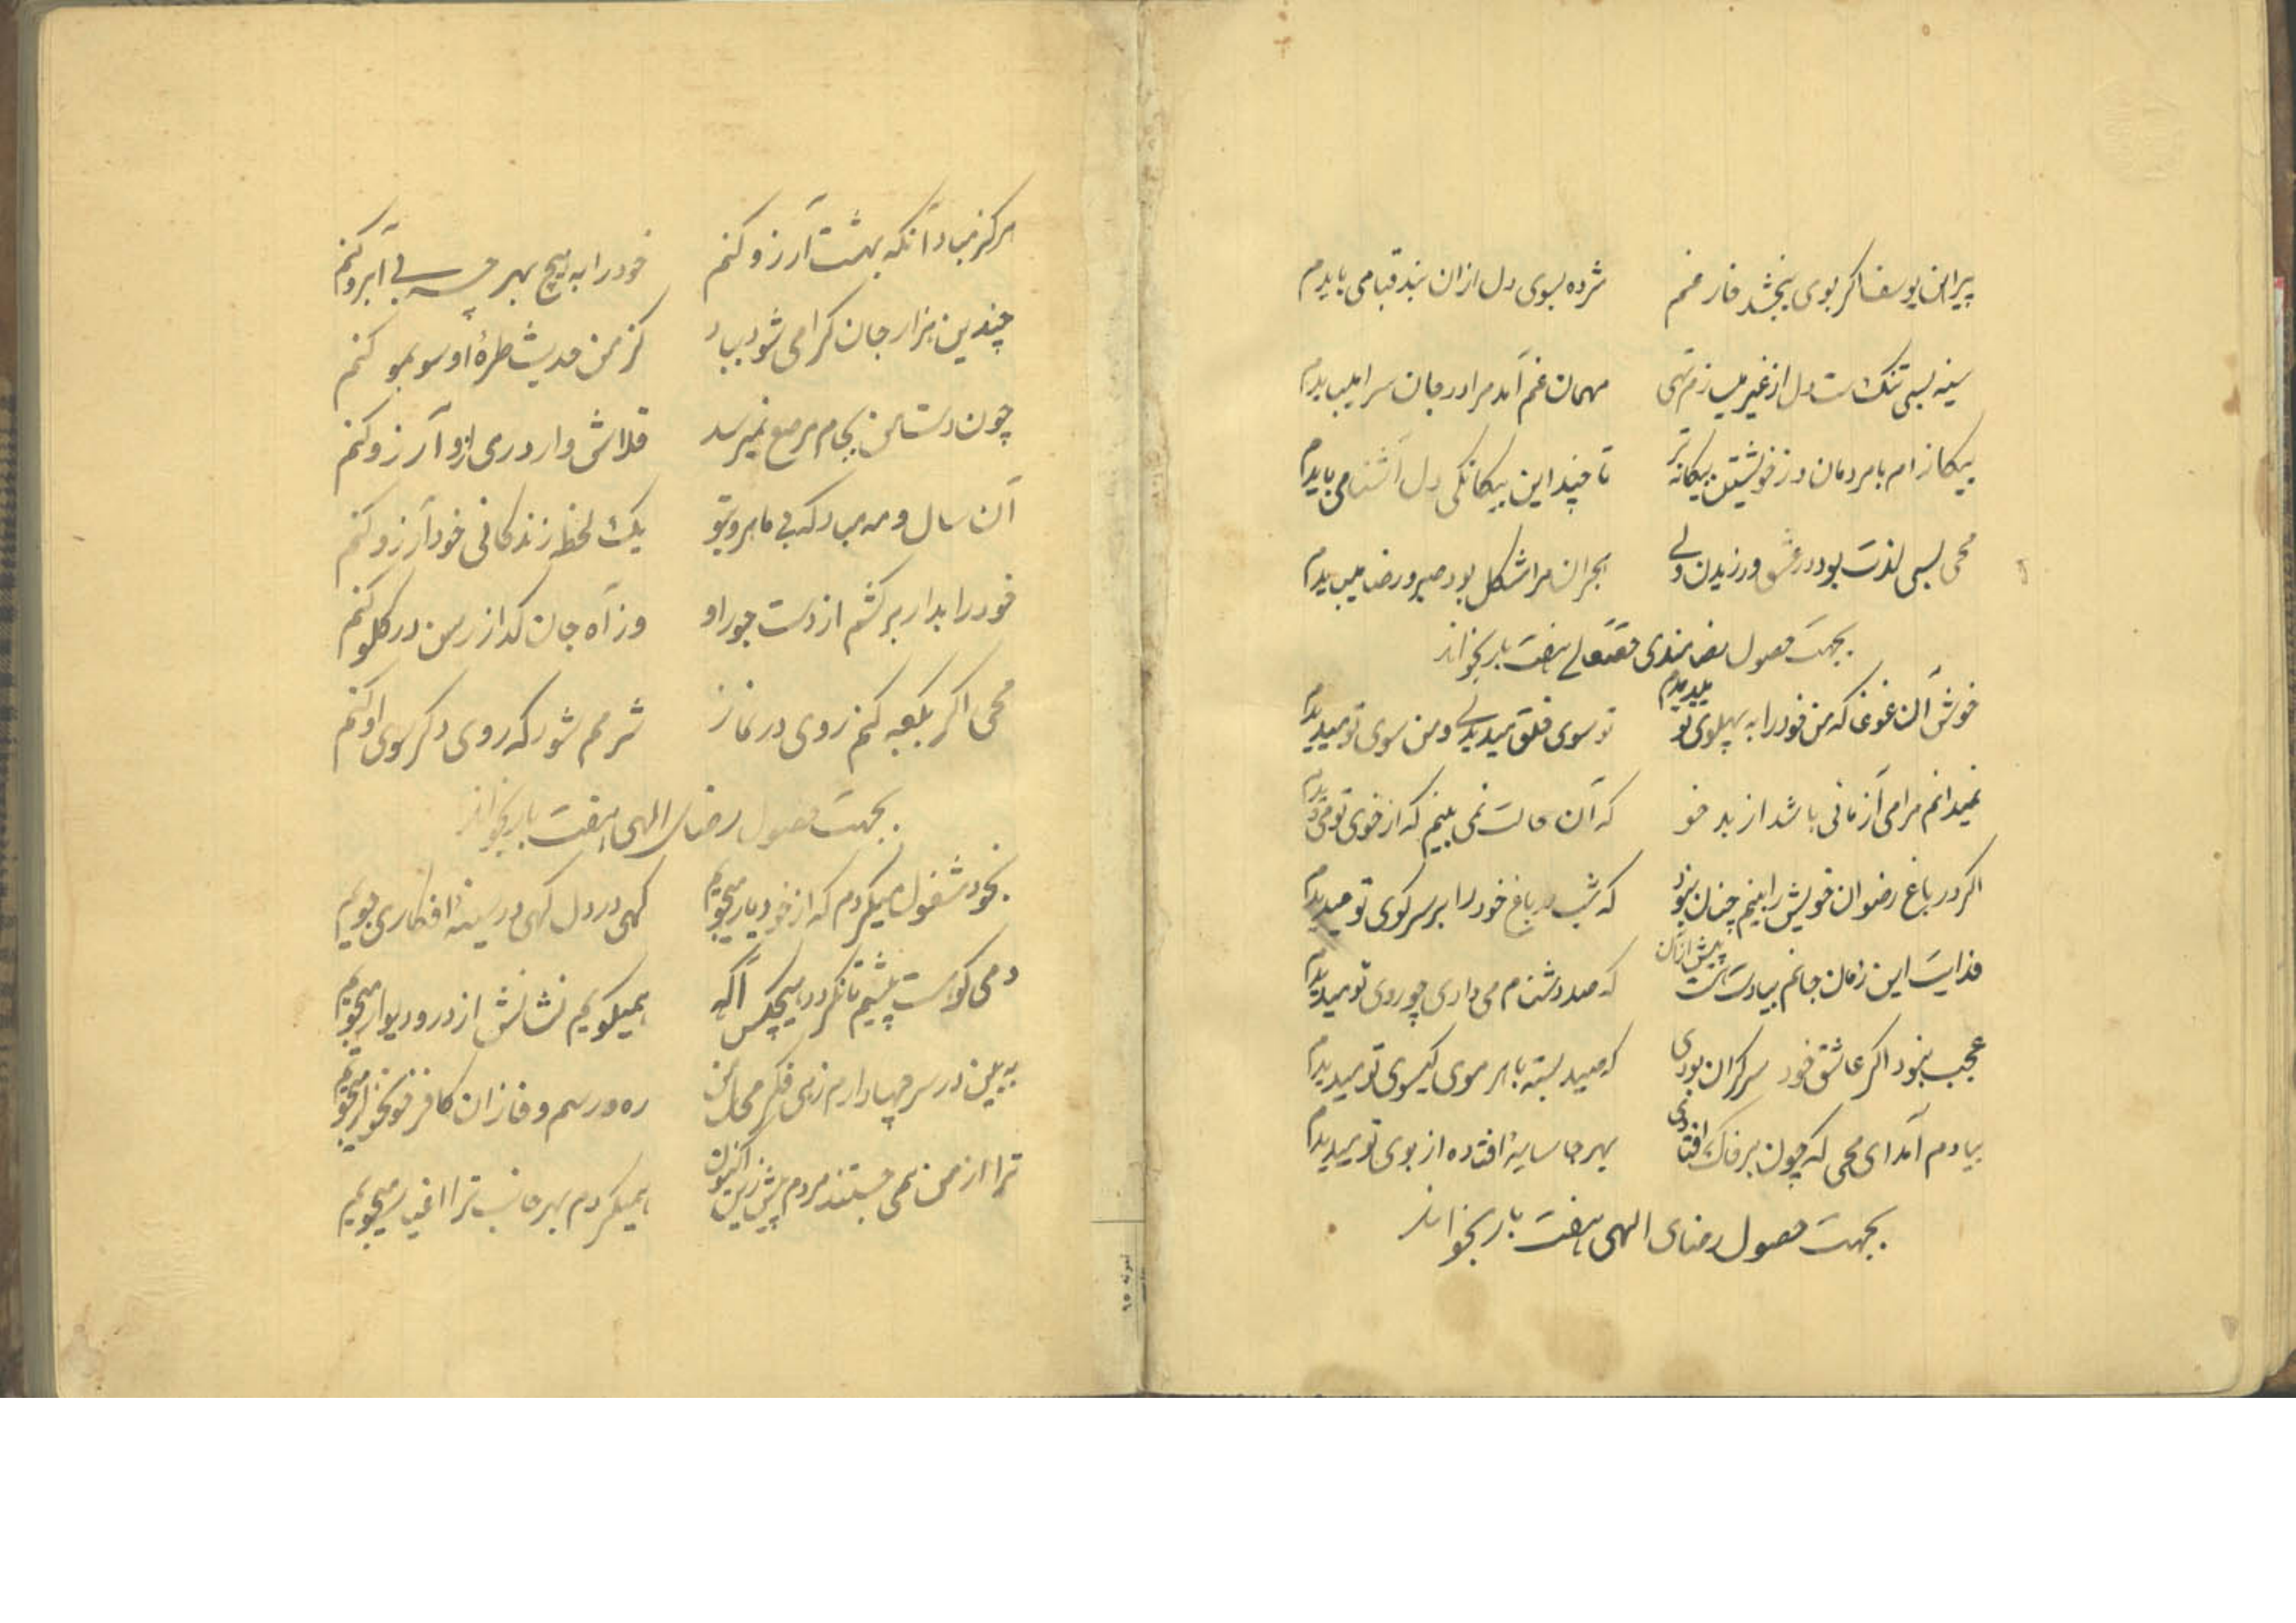 پیراهن یوسف اگر بوی نبخشد فارغم مژده بسوی دل ازان بند قبا می بایدم
سینه بسی تنک است دل از غیر میسازم تهی مهمان غم آمد مرا در جان سرا میبایدم
بیکانه ام با مردمان وز خویشتن بیکانه تر تا چند این بیکانکی دل آشنا می بایدم
محی بسی لذت بود در عشق ورزیدن ولی هجران مرا مشکل بود صبر و رضا میبایدم
بجهت حصول رضامندی حقتعالی هفت بار بخواند
خوش آن غوغا که من خود را به پهلوی تو میدیدم تو سوی خلق میدیدی و من سوی تو میدیدم
نمیدانم مرامی آزمانی باشد از بد خو که آن حالت نمی بینم که از خوی تو می دیدم
اکر در باغ رضوان خویش را بینم چنان نبود که شب در باغ خود را بر سر کوی تو میدیدم
فدایت این زمان جانم بیادت است پیش ازان که صد دشنام می دادی چو روی تو میدیدم
عجب نبود اکر عاشق خود سرکران بودی که صید بسته با هر موی کیسوی تو میدیدم
بیادم آمد ای محی که چون بر خاک افتادی بهر جا سایهٔ افتاده از بوی تو میدیدم
بجهت حصول رضای الهی هفت بار بخواند
هرکز مباد آنکه بهشت آرزو کنم خود را به هیچ بهر چه بی آبرو کنم
چندین هزار جان کرامی شود بباد کز من حدیث طرهٔ او مو بمو کنم
چون دست من بجام مرصع نمیرسد قلاش وار دردی ازو آرزو کنم
آن سال و مه مباد که بی ماه روی تو یک لحظه زندکانی خود آرزو کنم
خود را بدار برکشم از دست جور او وز آه جان کداز رسن در کلو کنم
محی اکر بکعبه کنم روی در نماز شرمم شود که روی دکر سوی او کنم
بجهت حصول رضای الهی هفت بار بخواند
بخود مشغول میکردم که از خود یار میجویم کهی در دل کهی در سینهٔ افکار می جویم
دمی کو است پیشیم تا نکردد هیچکس آکه همیکویم نشانش از در و دیوار میجویم
به بین در سر چها دارم زهی فکر محال من ره و رسم وفا زان کافر خونخوار میجویم
ترا از من نمی جستند مردم پیش زین اکنون همیکردم بهر جانب ترا اغیار میجویم
نمونه ۹۵